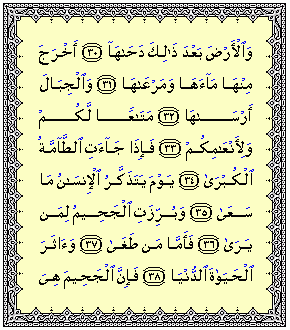 وَٱلْأَرْضَ بَعْدَ ذَٰلِكَ دَحَىٰهَآ ﴿٣٠﴾ أَخْرَجَ
مِنْهَا مَآءَهَا وَمَرْعَىٰهَا ﴿٣١﴾ وَٱلْجِبَالَ
أَرْسَىٰهَا ﴿٣٢﴾ مَتَٰعًا لَّكُمْ
وَلِأَنْعَٰمِكُمْ ﴿٣٣﴾ فَإِذَا جَآءَتِ ٱلطَّآمَّةُ
ٱلْكُبْرَىٰ ﴿٣٤﴾ يَوْمَ يَتَذَكَّرُ ٱلْإِنسَٰنُ مَا
سَعَىٰ ﴿٣٥﴾ وَبُرِّزَتِ ٱلْجَحِيمُ لِمَن
يَرَىٰ ﴿٣٦﴾ فَأَمَّا مَن طَغَىٰ ﴿٣٧﴾ وَءَاثَرَ
ٱلْحَيَوٰةَ ٱلدُّنْيَا ﴿٣٨﴾ فَإِنَّ ٱلْجَحِيمَ هِىَ